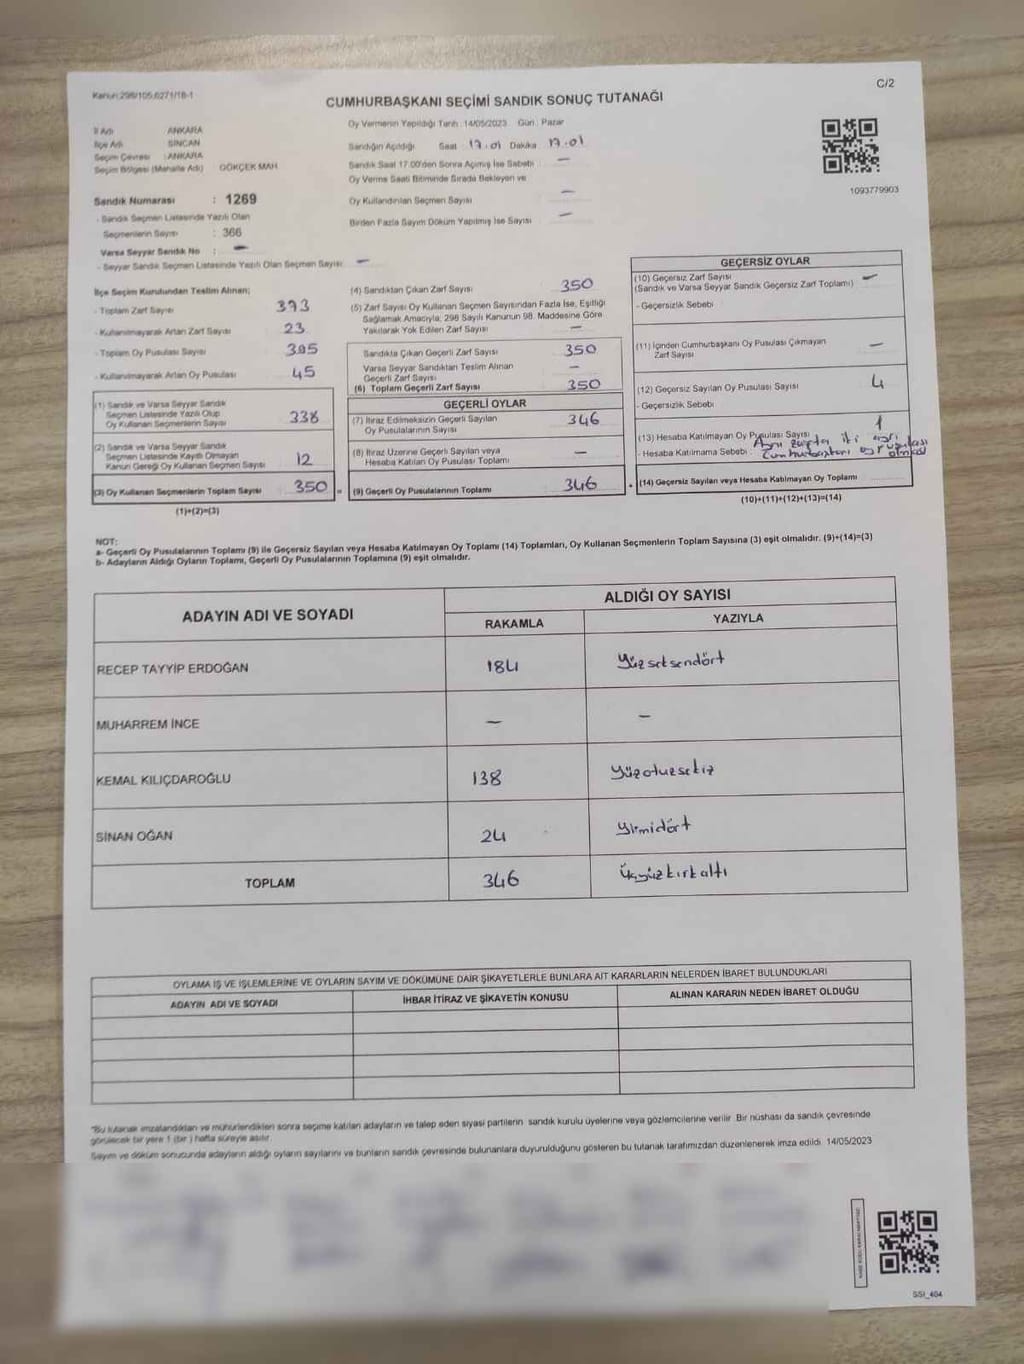 Kanun:298/105,6271/18-1
C/2
CUMHURBAŞKANI SEÇİMİ SANDIK SONUÇ TUTANAĞI
İl Adı ANKARA
İlçe Adı SİNCAN
Seçim Çevresi : ANKARA
Seçim Bölgesi (Mahalle Adı) GÖKÇEK MAH
Sandık Numarası : 1269
- Sandık Seçmen Listesinde Yazılı Olan
Seçmenlerin Sayısı : 366
Varsa Seyyar Sandık No : -
- Seyyar Sandık Seçmen Listesinde Yazılı Olan Seçmen Sayısı -
Oy Vermenin Yapıldığı Tarih : 14/05/2023 Gün : Pazar
Sandığın Açıldığı Saat 17.01 Dakika 17.01
Sandık Saat 17.00'den Sonra Açılmış İse Sebebi -
Oy Verme Saati Bitiminde Sırada Bekleyen ve
Oy Kullandırılan Seçmen Sayısı -
Birden Fazla Sayım Döküm Yapılmış İse Sayısı -
1093779903
İlçe Seçim Kurulundan Teslim Alınan;
- Toplam Zarf Sayısı 373
- Kullanılmayarak Artan Zarf Sayısı 23
- Toplam Oy Pusulası Sayısı 395
- Kullanılmayarak Artan Oy Pusulası 45
(1) Sandık ve Varsa Seyyar Sandık
Seçmen Listesinde Yazılı Olup
Oy Kullanan Seçmenlerin Sayısı 338
(2) Sandık ve Varsa Seyyar Sandık
Seçmen Listesinde Kayıtlı Olmayan
Kanun Gereği Oy Kullanan Seçmen Sayısı 12
(3) Oy Kullanan Seçmenlerin Toplam Sayısı 350 =
(1)+(2)=(3)
(4) Sandıktan Çıkan Zarf Sayısı 350
(5) Zarf Sayısı Oy Kullanan Seçmen Sayısından Fazla İse, Eşitliği
Sağlamak Amacıyla, 298 Sayılı Kanunun 98. Maddesine Göre
Yakılarak Yok Edilen Zarf Sayısı -
Sandıkta Çıkan Geçerli Zarf Sayısı 350
Varsa Seyyar Sandıktan Teslim Alınan
Geçerli Zarf Sayısı -
(6) Toplam Geçerli Zarf Sayısı 350
GEÇERLİ OYLAR
(7) İtiraz Edilmeksizin Geçerli Sayılan
Oy Pusulalarının Sayısı 346
(8) İtiraz Üzerine Geçerli Sayılan veya
Hesaba Katılan Oy Pusulası Toplamı -
(9) Geçerli Oy Pusulalarının Toplamı 346 +
GEÇERSİZ OYLAR
(10) Geçersiz Zarf Sayısı -
(Sandık ve Varsa Seyyar Sandık Geçersiz Zarf Toplamı)
- Geçersizlik Sebebi
(11) İçinden Cumhurbaşkanı Oy Pusulası Çıkmayan
Zarf Sayısı -
(12) Geçersiz Sayılan Oy Pusulası Sayısı 4
- Geçersizlik Sebebi
(13) Hesaba Katılmayan Oy Pusulası Sayısı 1
- Hesaba Katılmama Sebebi : Aynı zarfta iki ayrı
Cumhurbaşkanı oy pusulası
olması
(14) Geçersiz Sayılan veya Hesaba Katılmayan Oy Toplamı
(10)+(11)+(12)+(13)=(14)
NOT:
a- Geçerli Oy Pusulalarının Toplamı (9) ile Geçersiz Sayılan veya Hesaba Katılmayan Oy Toplamı (14) Toplamları, Oy Kullanan Seçmenlerin Toplam Sayısına (3) eşit olmalıdır. (9)+(14)=(3)
b- Adayların Aldığı Oyların Toplamı, Geçerli Oy Pusulalarının Toplamına (9) eşit olmalıdır.
ADAYIN ADI VE SOYADI
ALDIĞI OY SAYISI
RAKAMLA YAZIYLA
RECEP TAYYİP ERDOĞAN 184 Yüzseksendört
MUHARREM İNCE - -
KEMAL KILIÇDAROĞLU 138 Yüzotuzsekiz
SİNAN OĞAN 24 Yirmidört
TOPLAM 346 Üçyüzkırkaltı
OYLAMA İŞ VE İŞLEMLERİNE VE OYLARIN SAYIM VE DÖKÜMÜNE DAİR ŞİKAYETLERLE BUNLARA AİT KARARLARIN NELERDEN İBARET BULUNDUKLARI
ADAYIN ADI VE SOYADI İHBAR İTİRAZ VE ŞİKAYETİN KONUSU ALINAN KARARIN NEDEN İBARET OLDUĞU
"Bu tutanak imzalandıktan ve mühürlendikten sonra seçime katılan adayların ve talep eden siyasi partilerin sandık kurulu üyelerine veya gözlemcilerine verilir. Bir nüshası da sandık çevresinde
görülecek bir yere 1 (bir ) hafta süreyle asılır.
Sayım ve döküm sonucunda adayların aldığı oyların sayılarını ve bunların sandık çevresinde bulunanlara duyurulduğunu gösteren bu tutanak tarafımızdan düzenlenerek imza edildi. 14/05/2023
SSI_404